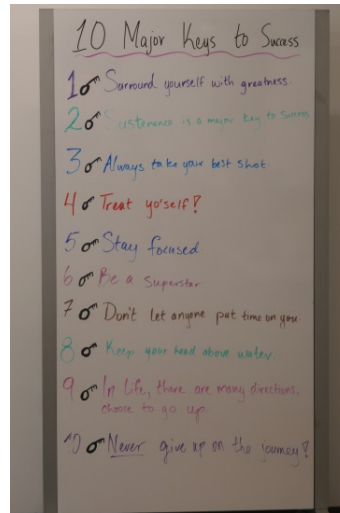 10 Major Keys to Success
1 Surround yourself with greatness.
2 Sustenance is a major key to success
3 Always take your best shot.
4 Treat yo'self!
5 Stay focused
6 Be a superstar
7 Don't let anyone put time on you
8 Keep your head above water
9 In life, there are many directions,
choose to go up.
10 Never give up on the journey!